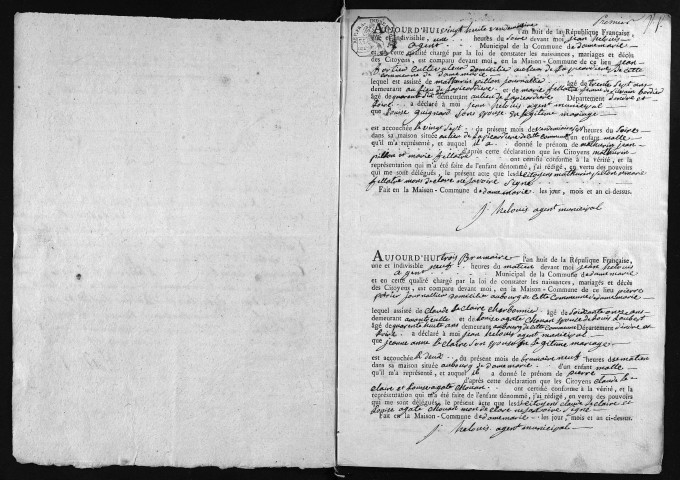 premier
AUJOURD'HUI vingt huite vendemiaire l'an huit de la République Française,
une et indivisible, une heures du soire devant moi jean helouis
agent Municipal de la Commune de damemarie
et en cette qualité chargé par la loi de constater les naissances, mariages et décès
des Citoyens, est comparu devant moi, en la Maison-Commune de ce lieu jean
portier cultivateur domicilié au lieu de la de cette
commune de damemarie
lequel est assisté de mathurin pillon journallier âgé de trente sept ans
demeurant au lieu de et de marie pelletré
âgé de quarante demeurant au lieu de Département d'indre et
loire a déclaré à moi jean helouis agent municipal
que louise guignard son epouse en legitime mariage
est accouchée le vingt sept du présent mois de vendemiaire heures du soire
dans sa maison située au lieu de cette commune un enfant malle
qu'il m'a représenté, et auquel il a donné le prénom de mathurin jean
d'après cette déclaration que les Citoyens mathurin
pillon et marie pelletré ont certifié conforme à la vérité, et la
représentation qui m'a été faite de l'enfant dénommé, j'ai rédigé, en vertu des pouvoirs
qui me sont délégués, le présent acte que les citoyens mathurin pillon et marie
pelletré mons declaré ne savoire signé
Fait en la Maison-Commune de damemarie les jour, mois et an ci-dessus.
j. helouis agent municipal
AUJOURD'HUI trois Brumaire l'an huit de la République Française,
une et indivisible neuf heures du matein devant moi jean helouis
agent Municipal de la Commune de damemarie
et en cette qualité chargé par la loi de constater les naissances, mariages et décès
des Citoyens, est comparu devant moi, en la Maison-Commune de ce lieu pierre
journallier domicilié au bourg de cette Commune de damemarie
lequel assisté de claude leclaire charbonnie âgé de soixante onze ans
demeurant et de louise agate chouan epouse de louis
âgé de quarente huite ans demeurant au bourg de cette commune Département d'indre et
loire a déclaré à moi jean helouis agent municipal
que jeanne anne leclaire son epouse en legitime mariage
est accouchée le deux du présent mois de brumaire neuf heures du matein
dans sa maison située au bourg de damemarie d'un enfant malle
qu'il m'a représenté, et auquel il a donné le prénom de pierre
d'après cette déclaration que les Citoyens claude le
claire et louise agate chouan ont certifié conforme à la vérité, et la
représentation qui m'a été faite de l'enfant dénommé, j'ai rédigé, en vertu des pouvoirs
qui me sont délégués, le présent acte que les citoyens claude leclaire et
louise agate chouan mon declaré ne savoire signe
Fait en la Maison-Commune de damemarie les jour, mois et an ci-dessus.
j. helouis agent municipal